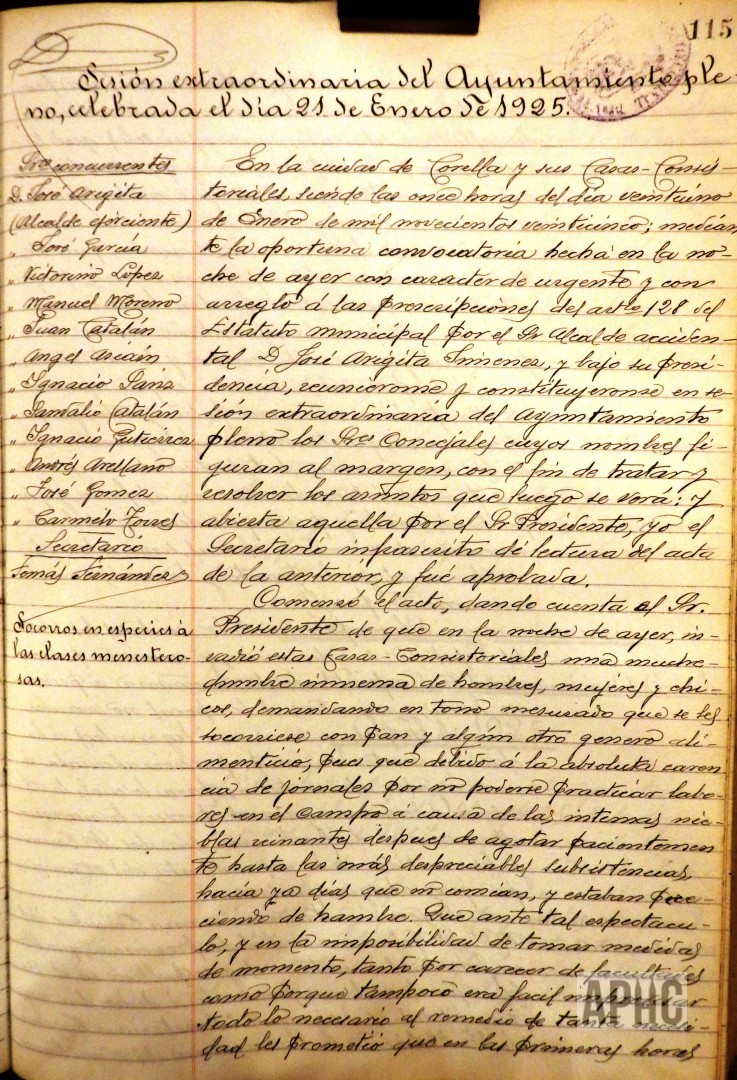 115
Sesión extraordinaria del Ayuntamiento ple-
no, celebrada el día 21 de Enero de 1925.
Sres concurrentes
D. José Arigita
(Alcalde ejerciente)
" José García
" Victorino López
" Manuel Moreno
" Juan Catalán
" Angel Ascain
" Ignacio
" Sandalio Catalán
" Ignacio Gutiérrez
" Andrés Arellano
" José Gomez
" Carmelo Torres
Secretario
Tomás Fernández
Socorros en especies á
las clases menestero-
sas.
En la ciudad de Corella y sus Casas-Consis-
toriales, siendo las once horas del dia veintiuno
de Enero de mil novecientos veinticinco; median-
te la oportuna convocatoria hecha en la no-
che de ayer con caracter de urgente y con
arreglo á las prescripciones del artº 128 del
Estatuto municipal por el Sr Alcalde acciden-
tal D. José Arigita Jimenez, y bajo su presi-
dencia, reunieronse y constituyeronse en se-
sión extraordinaria del Ayuntamiento
pleno los Sres Concejales cuyos nombres fi-
guran al margen, con el fin de tratar y
resolver los asuntos que luego se verá: y
abierta aquella por el Sr Presidente, yo el
Secretario infrascrito dí lectura del acta
de la anterior, y fué aprobada.
Comenzó el acto, dando cuenta el Sr.
Presidente de que en la noche de ayer, in-
vadió estas Casas-Consistoriales una muche-
dumbre inmensa de hombres, mujeres y chi-
cos, demandando en tono mesurado que se les
socorriese con pan y algún otro genero ali-
menticio, pues que debido á la absoluta caren-
cia de jornales por no poderse practicar labo-
res en el campo á causa de las intensas nie-
blas reinantes despues de agotar pacientemen-
te hasta las más despreciables subsistencias,
hacía ya días que no comían, y estaban pere-
ciendo de hambre. Que ante tal espectacu-
lo, y en la imposibilidad de tomar medidas
de momento, tanto por carecer de facultades
como porque tampoco era facil improvisar
todo lo necesario al remedio de tanta necesi-
dad les prometió que en las primeras horas
APHC